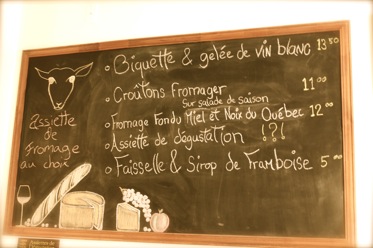 Biquette & gelée de vin blanc 13 50
Croûtons fromager 11 00
Sur salade de saison
Fromage Fondu Miel et Noix du Québec 12 00
Assiette de dégustation !?!
Faisselle & Sirop de Framboise 5 00
assiette
de
Fromage
au choix